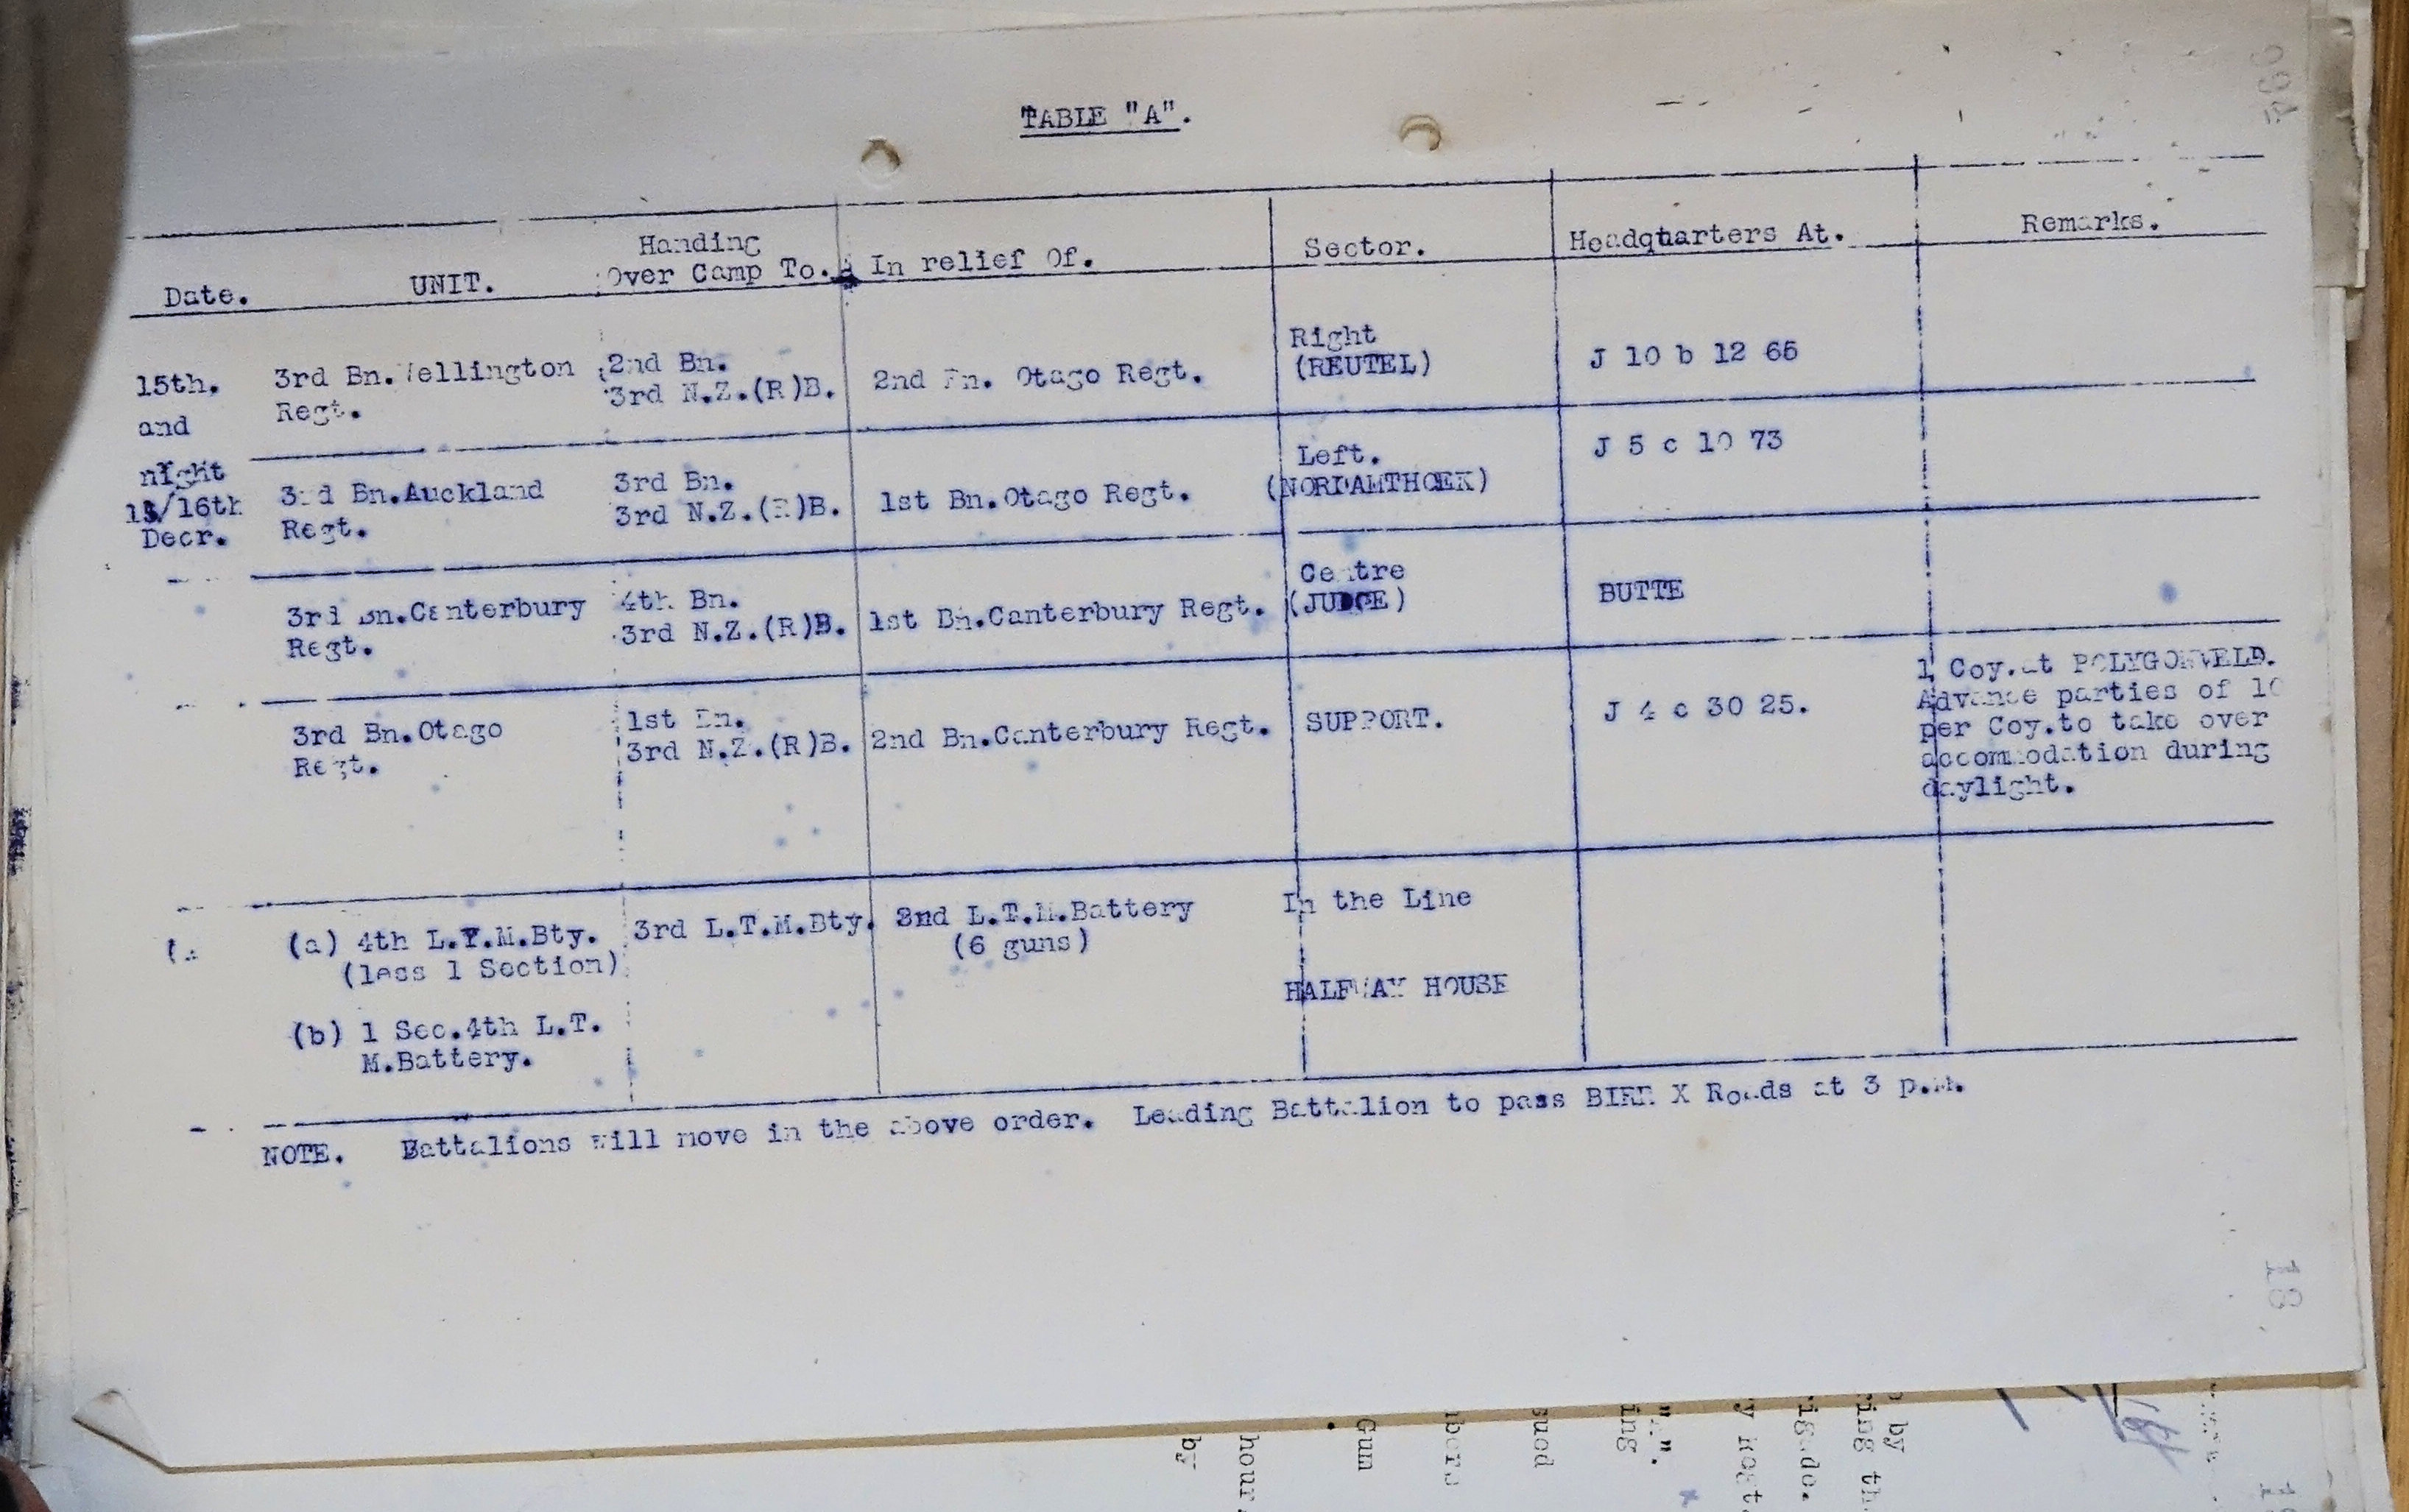 TABLE "A".
Date.
UNIT.
Handing
Over Camp To.
In relief Of.
Sector.
Headquarters At.
Remarks.
15th.
and
night
15/16th
Decr.
3rd Bn.Wellington
Regt.
2nd Bn.
3rd N.Z.(R)B.
2nd Bn. Otago Regt.
Right
(REUTEL)
J 10 b 12 65
3rd Bn.Auckland
Regt.
3rd Bn.
3rd N.Z.(R)B.
1st Bn.Otago Regt.
Left.
(NORDAMTHOEK)
J 5 c 10 73
3rd Bn.Canterbury
Regt.
4th Bn.
3rd N.Z.(R)B.
1st Bn.Canterbury Regt.
Centre
(JUDGE)
BUTTE
3rd Bn.Otago
Regt.
1st Bn.
3rd N.Z.(R)B.
2nd Bn.Canterbury Regt.
SUPPORT.
J 4 c 30 25.
1 Coy.at POLYGONVELD.
Advance parties of 10
per Coy.to take over
accommodation during
daylight.
(a) 4th L.T.M.Bty.
(less 1 Section)
3rd L.T.M.Bty.
2nd L.T.M.Battery
(6 guns)
In the Line
HALFWAY HOUSE
(b) 1 Sec.4th L.T.
M.Battery.
NOTE. Battalions will move in the above order. Leading Battalion to pass BIRR X Roads at 3 p.m.
18
by
hour.
Gun
ing
by